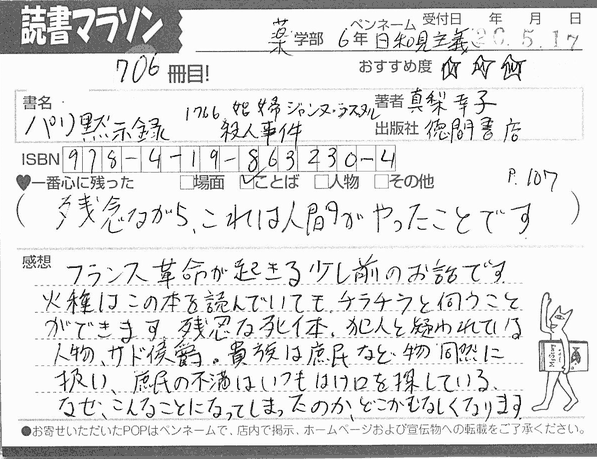 読書マラソン
706冊目!
薬学部 6年 ペンネーム 日和見主義
受付日 年 月 日
20.5.17
おすすめ度 ☆☆☆
書名 パリ黙示録 1766 娼婦ジャンヌ・ラスタル殺人事件
著者 真梨幸子
出版社 徳間書店
ISBN 978-4-19-863230-4
♥一番心に残った □場面 ☑ことば □人物 □その他 P.107
(残念ながら、これは人間がやったことです)
感想
フランス革命が起きる少し前のお話です
火種はこの本を読んでいても、チラチラと伺うこと
ができます。残忍な死体、犯人と疑われている
人物、サド侯爵。貴族は庶民など、物同然に
扱い、庶民の不満はいつもはけ口を探している、
なぜ、こんなことになってしまったのか、どこかむなしくなります
●お寄せいただいたPOPはペンネームで、店内で掲示、ホームページおよび宣伝物への転載をご了承ください。